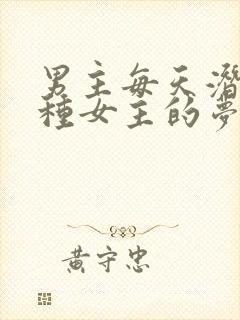 男主每天潛
種女主的夢
黃守忠